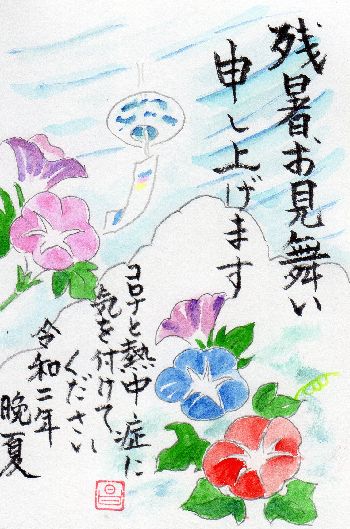 残暑お見舞い
申し上げます
コロナと熱中症に
気を付けて
ください
令和二年
晩夏